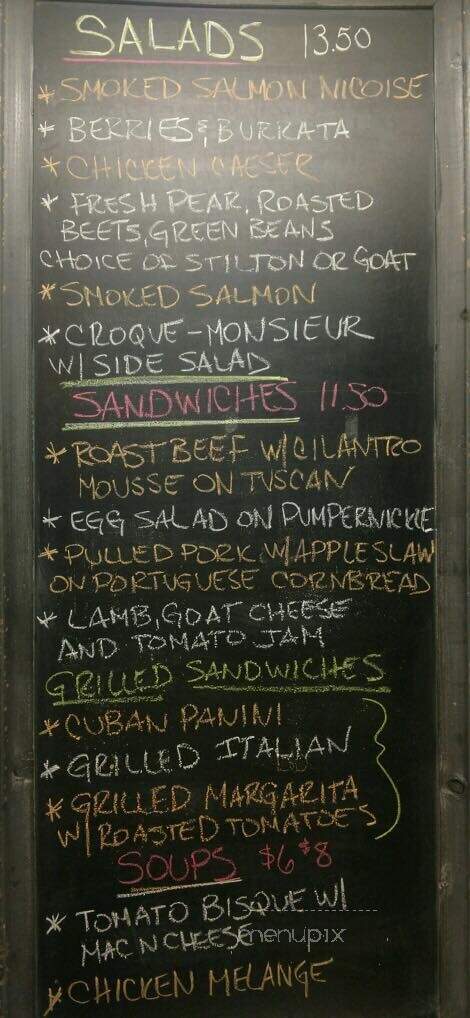 SALADS 13.50
* SMOKED SALMON NICOISE
* BERRIES & BURRATA
* CHICKEN CAESER
* FRESH PEAR, ROASTED
BEETS, GREEN BEANS
CHOICE OF STILTON OR GOAT
* SMOKED SALMON
* CROQUE-MONSIEUR
W/ SIDE SALAD
SANDWICHES 11.50
* ROAST BEEF W/CILANTRO
MOUSSE ON TUSCAN
* EGG SALAD ON PUMPERNICKLE
* PULLED PORK W/APPLESLAW
ON PORTUGUESE CORNBREAD
* LAMB, GOAT CHEESE
AND TOMATO JAM
GRILLED SANDWICHES
* CUBAN PANINI
* GRILLED ITALIAN
* GRILLED MARGARITA
W/ ROASTED TOMATOES
SOUPS $6 $8
* TOMATO BISQUE W/
MAC N CHEESE
menupix
* CHICKEN MELANGE